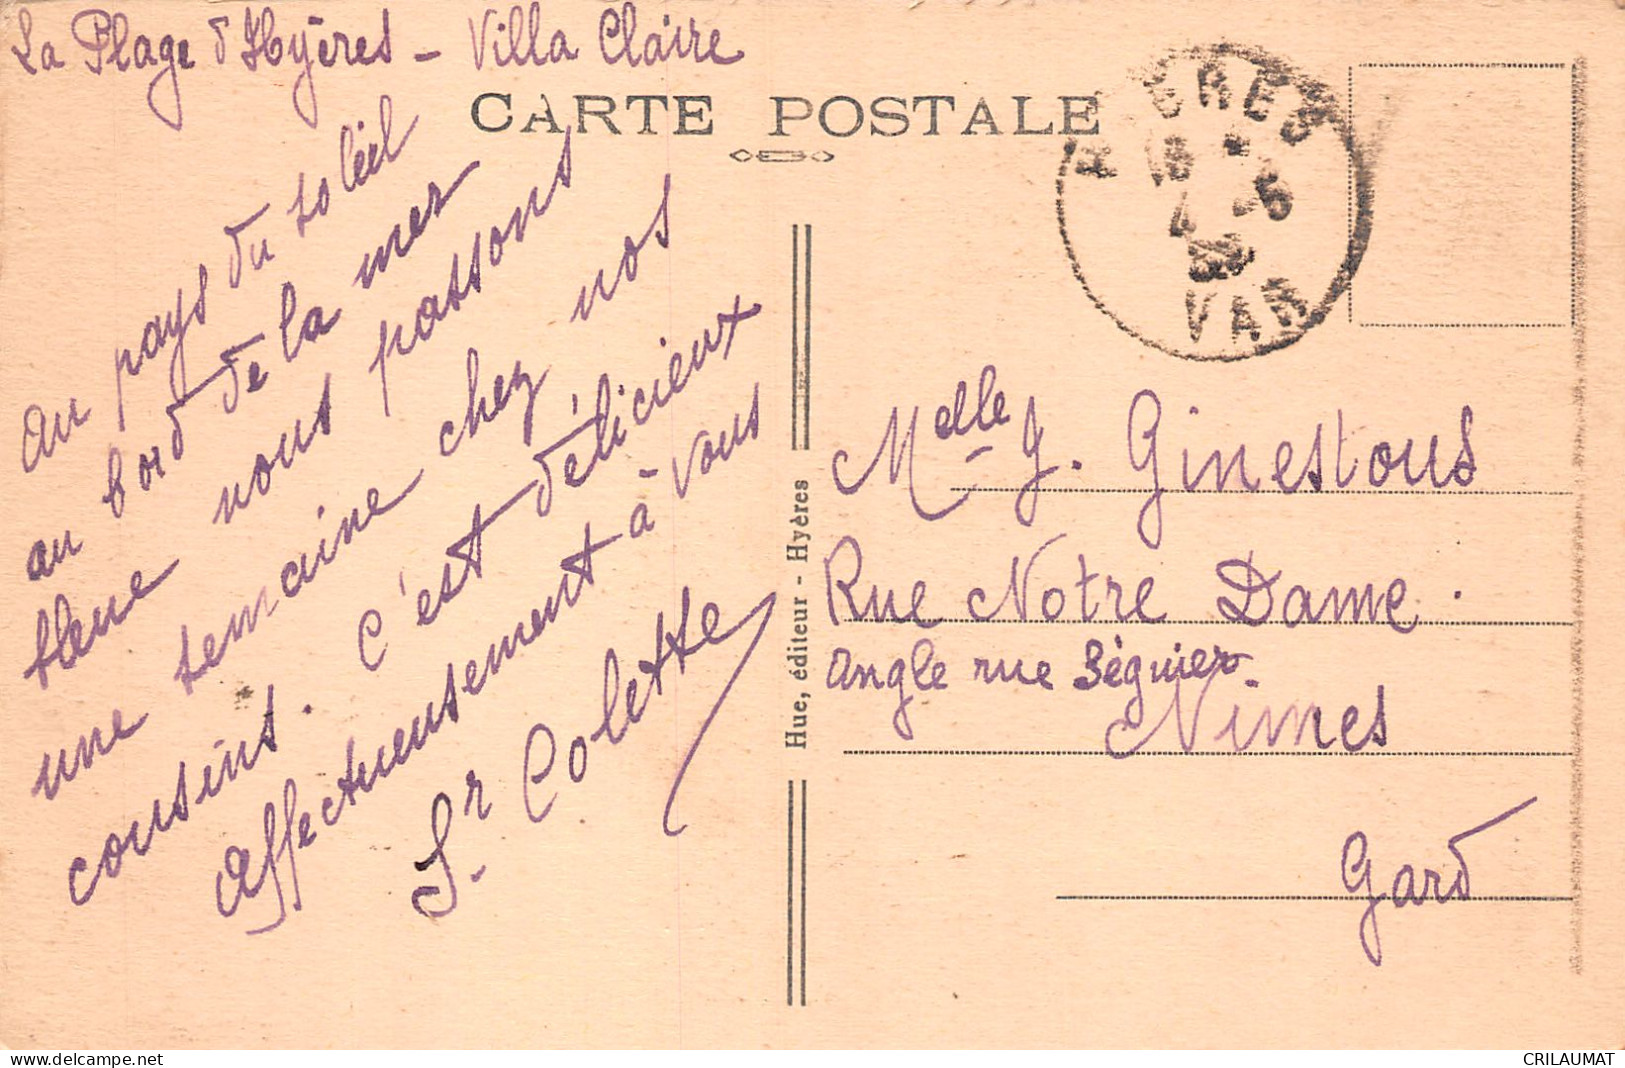 La Plage d'Hyères - Villa Claire
CARTE POSTALE
au pays du soleil
au bord de la mer
bleue nous passons
une semaine chez nos
cousins. C'est délicieux
Affectueusement à vous
Sr Colette
Hue, éditeur - Hyères
HYERES
18
4 -5
VAR
Melle J. Ginestous
Rue Notre Dame.
angle rue Séguier
Nimes
Gard
delcampe.net
CRILAUMAT